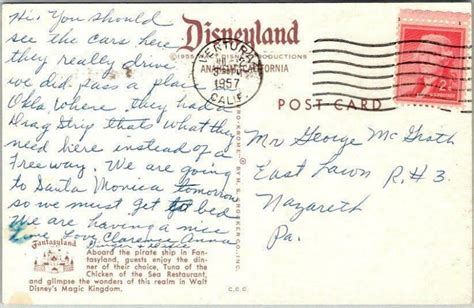 Hi. You should
see the cars here
they really drive
we did pass a place in
Okla where they had a
Drag Strip thats what they
need here instead of a
Freeway. We are going
to Santa Monica tomorrow
so we must get to bed
We are having a nice
time Love Clarence Anna
Ginger
Fantasyland
Aboard the pirate ship in Fan-
tasyland, guests enjoy the din-
ner of their choice, Tuna of the
Chicken of the Sea Restaurant,
and glimpse the wonders of this realm in Walt
Disney's Magic Kingdom.
Disneyland
©1955 WALT DISNEY PRODUCTIONS
ANAHEIM, CALIFORNIA
VENTURA
1957
CALIF.
POST CARD
2¢
Mr George McGrath
East Lawn R.#3.
Nazareth
Pa.
C.C.C.